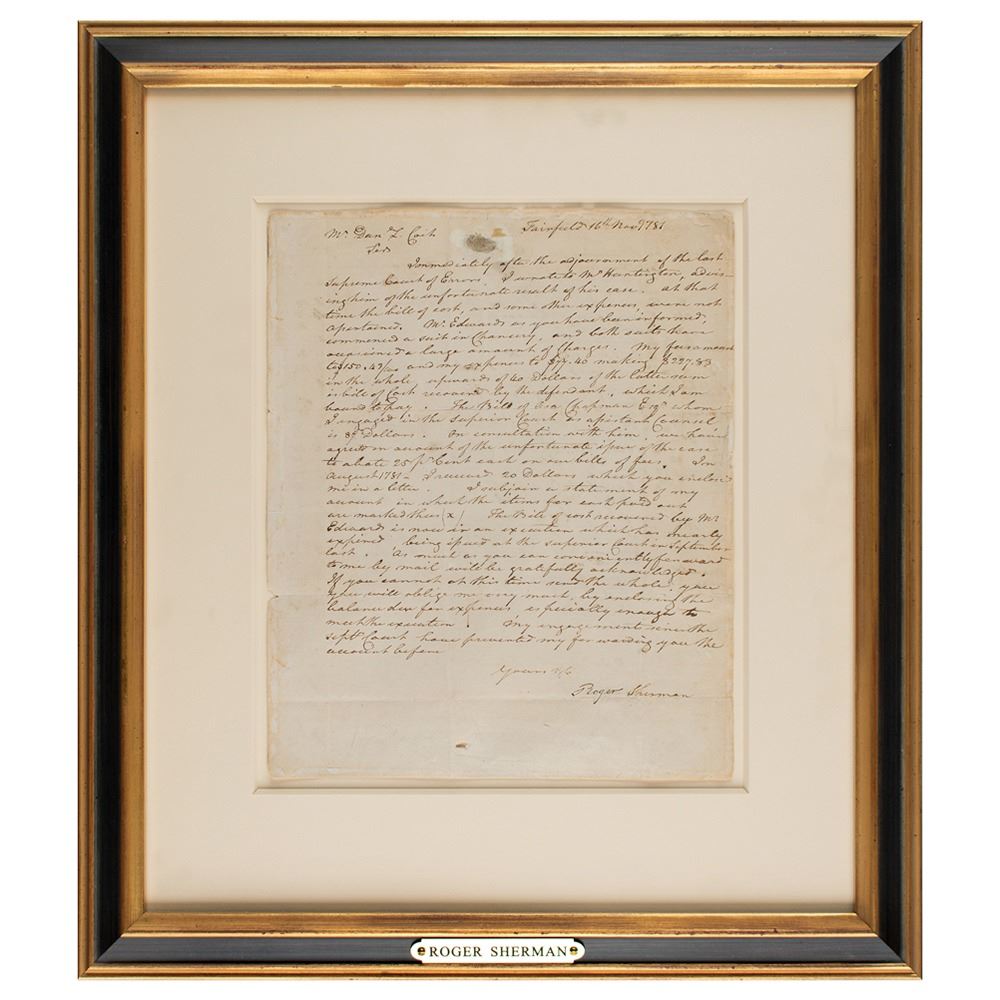 Mr. Dan L. Fairfield 16th Nov 1781
Sir
Immediately after the adjournment of the last
Supreme Court of Errors, I wrote to Mr Huntington, advis-
ing him of the unfortunate result of his case. at that
time the bill of cost, and some other expences, were not
Mr. Edwards as you have been informed,
commenced a suit in Chancery, and both suits have
occasioned a large amount of Charges. My fees amount
to $150. and my expences to $77.40 making $227.83
in the whole, upwards of 40 Dollars of the latter sum
is bill of Cost recovered by the defendant, which I am
bound to pay. The Bill of Asa Chapman Esqr whom
I engaged in the Superior Court as assistant Counsel
is Dollars. On consultation with him, we have
agreed on account of the unfortunate issue of the case
to abate 25 pr Cent each on our bills of fees. In
August 1781 I received 20 Dollars which you enclosed
me in a letter. I subjoin a statement of my
account in which the items for cash paid out
are marked thus (x) The Bill of cost recovered by Mr
Edwards is now in an execution which has nearly
expired being issued at the superior Court in September
last. As much as you can conveniently forward
to me by mail will be gratefully acknowledged.
If you cannot at this time send the whole,
you will oblige me very much by enclosing the
balance due for expences especially enough to
meet the execution. My engagements since the
Sept. Court have prevented my forwarding you the
account before
Yours &c
Roger Sherman
ROGER SHERMAN